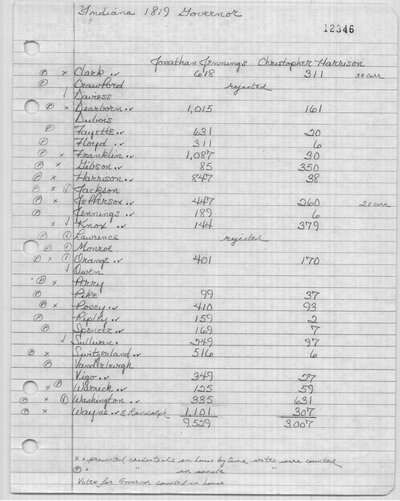 Indiana 1819 Governor
12346
Jonathan Jennings Christopher Harrison
Ⓟ × Clark ✓ 618 311
Ⓟ Crawford rejected
✓ Daviess
Ⓟ × Dearborn ✓ 1,015 161
Dubois
Ⓟ Fayette ✓ 631 20
Ⓟ Floyd ✓ 311 6
Ⓟ × Franklin ✓ 1,087 30
Ⓟ × Gibson ✓ 85 350
Ⓟ × Harrison ✓ 847 38
Ⓟ × ✓ Jackson
Ⓟ × Jefferson ✓ 447 260
Ⓟ Jennings ✓ 189 6
× ✓ Knox ✓ 144 379
Ⓟ Lawrence rejected
Ⓟ Monroe
Ⓟ × Orange ✓ 401 170
✓ Owen
Ⓟ × Perry
Ⓟ Pike 99 37
Ⓟ × Posey ✓ 410 93
Ⓟ Ripley ✓ 159 2
Ⓟ Spencer ✓ 169 7
✓ Sullivan ✓ 249 97
Ⓟ × Switzerland ✓ 516 6
Ⓟ Vanderburgh
Vigo ✓ 349 27
× Ⓟ Warrick ✓ 125 59
Ⓟ × Washington ✓ 335 631
Ⓟ × Wayne ✓ & Randolph 1,101 307
9,529 3,007
× = presented credentials in house by time votes were counted
Ⓟ = " " in senate "
Votes for Governor counted in house